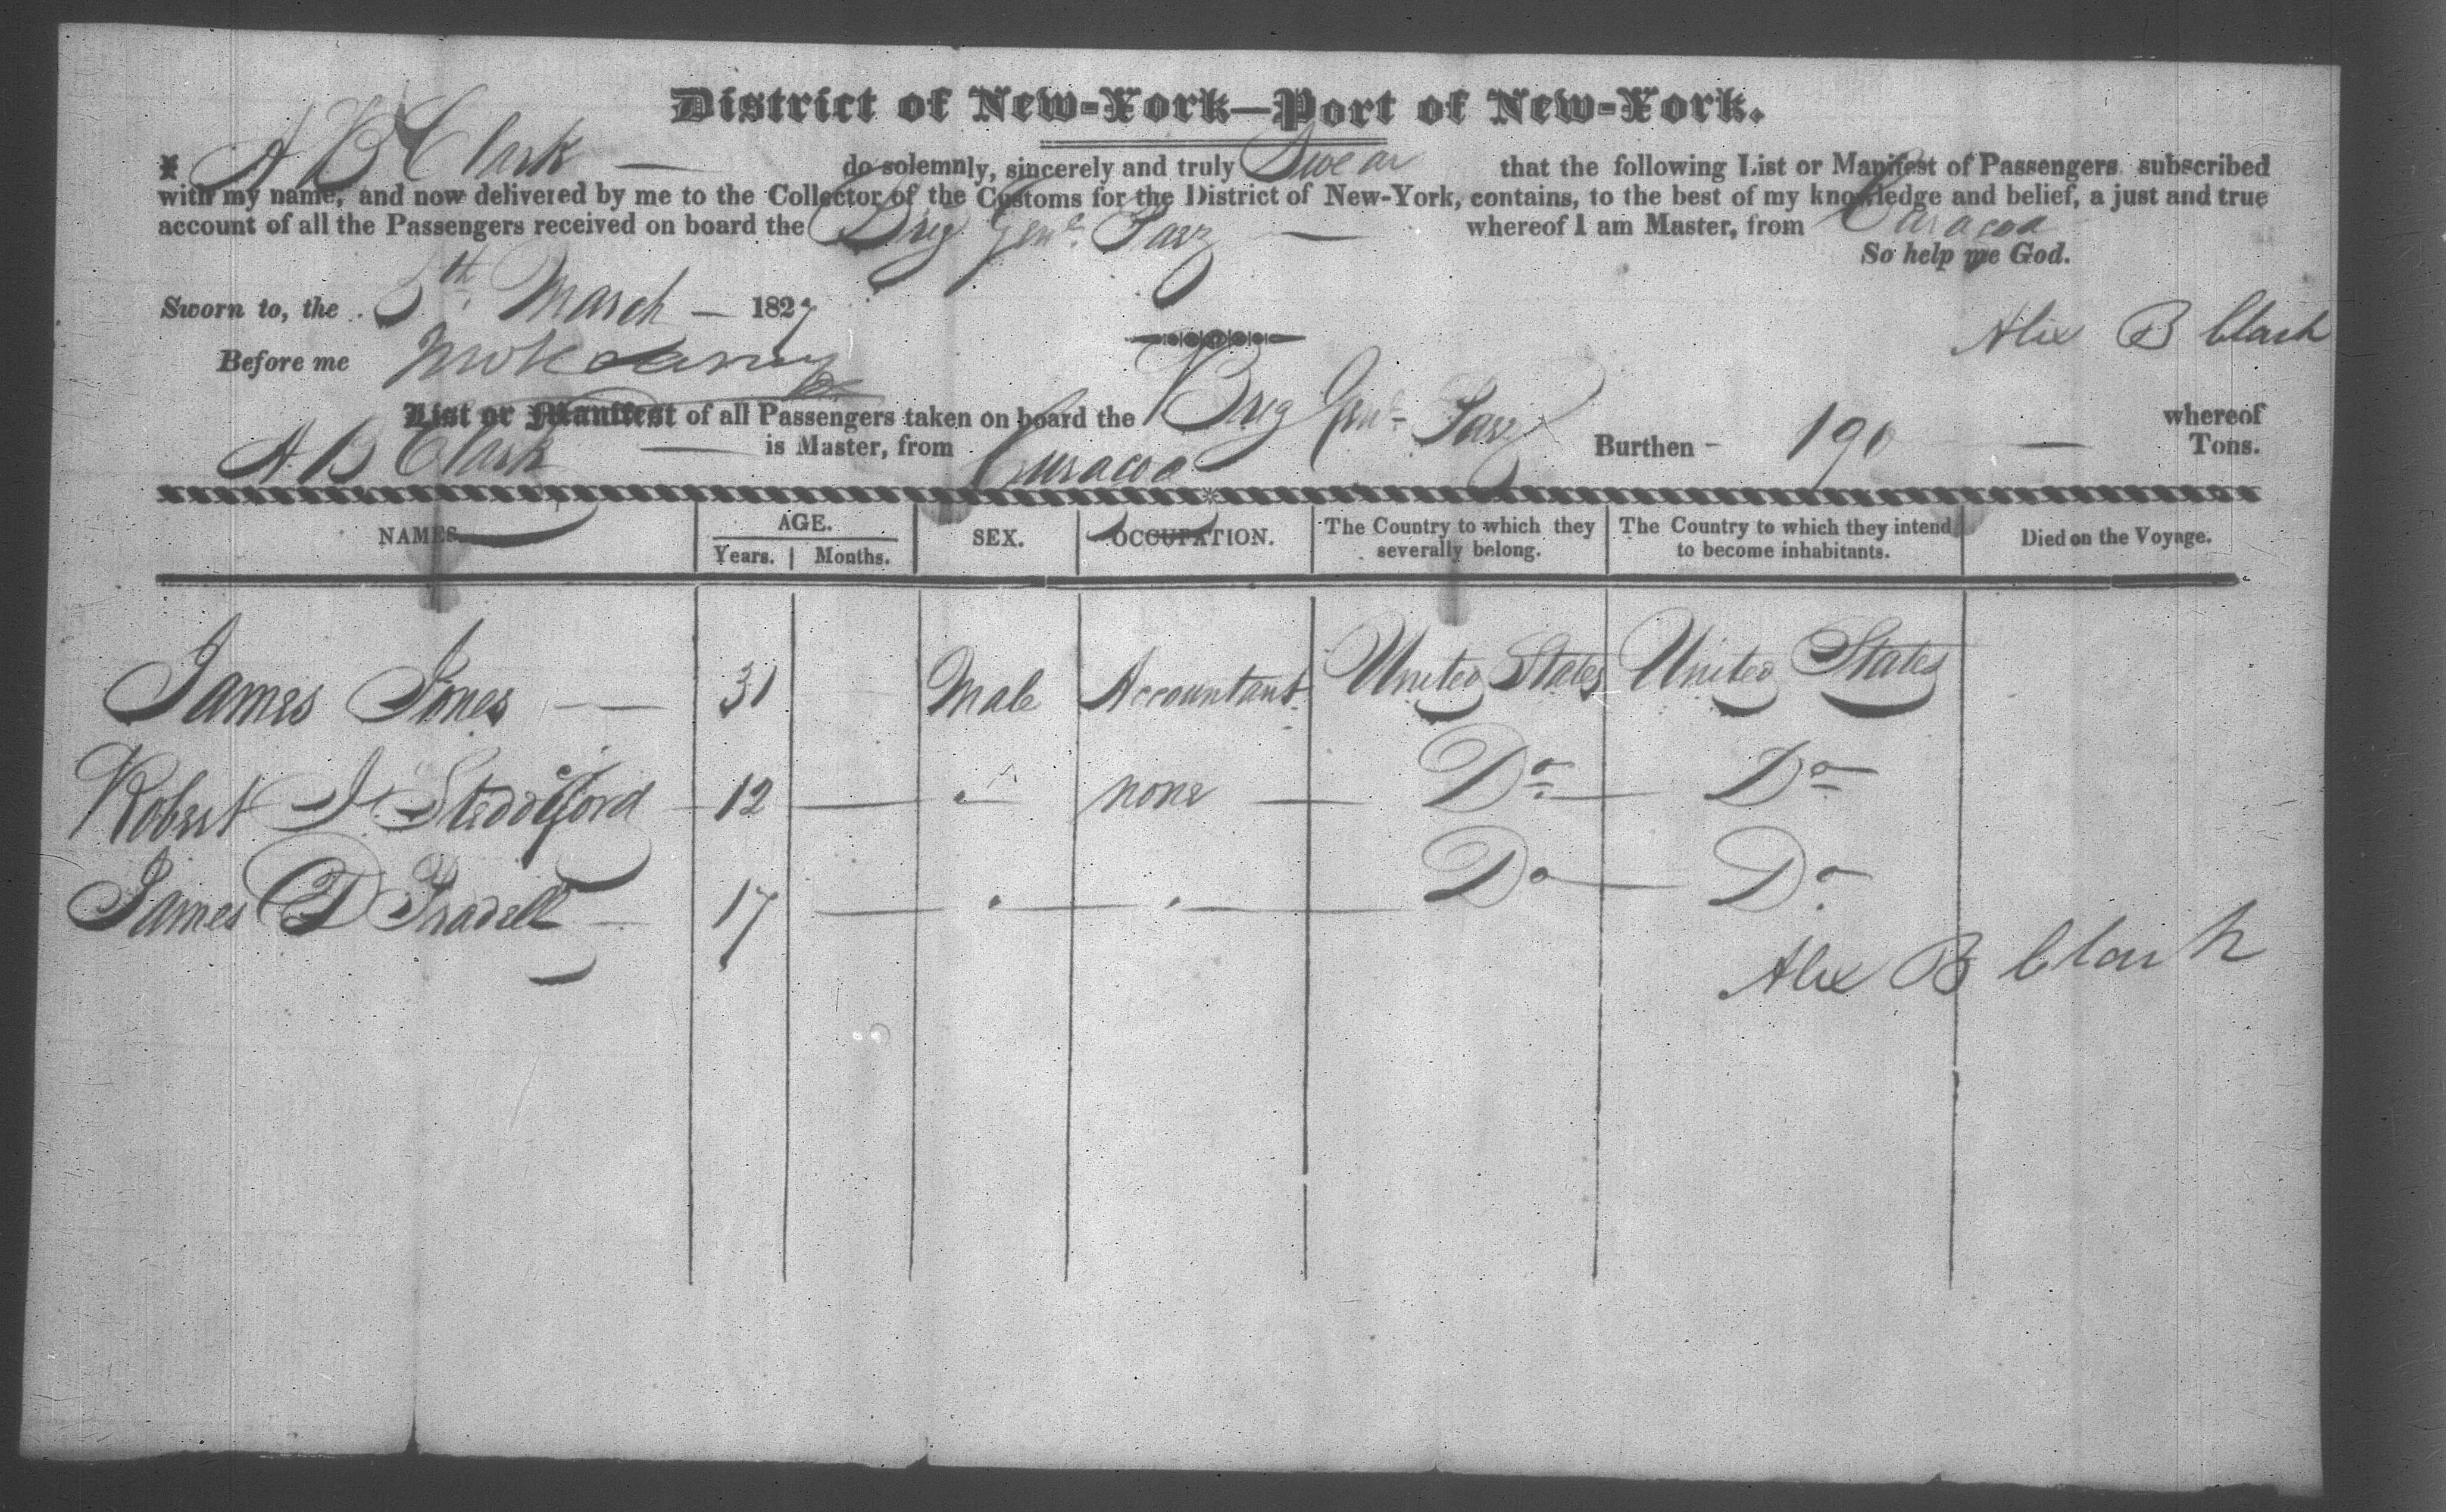 District of New-York—Port of New-York.
I, A B Clark — do solemnly, sincerely and truly Swear that the following List or Manifest of Passengers subscribed
with my name, and now delivered by me to the Collector of the Customs for the District of New-York, contains, to the best of my knowledge and belief, a just and true
account of all the Passengers received on board the Brig Genl. Parr — whereof I am Master, from Curacoa
So help me God.
Sworn to, the 5th March — 1827
Alex B Clark
Before me
List or Manifest of all Passengers taken on board the Brig Genl. whereof
A. B Clark — is Master, from Curacoa Burthen - 190 — Tons.
NAMES. AGE. SEX. OCCUPATION. The Country to which they severally belong. The Country to which they intend to become inhabitants. Died on the Voyage.
Years. Months.
James Jones — 31 Male Accountant United States United States
Robert J. Steddiford 12 — " none — Do — Do
James D Fradell — 17 — " — " — Do — Do.
Alex B Clark